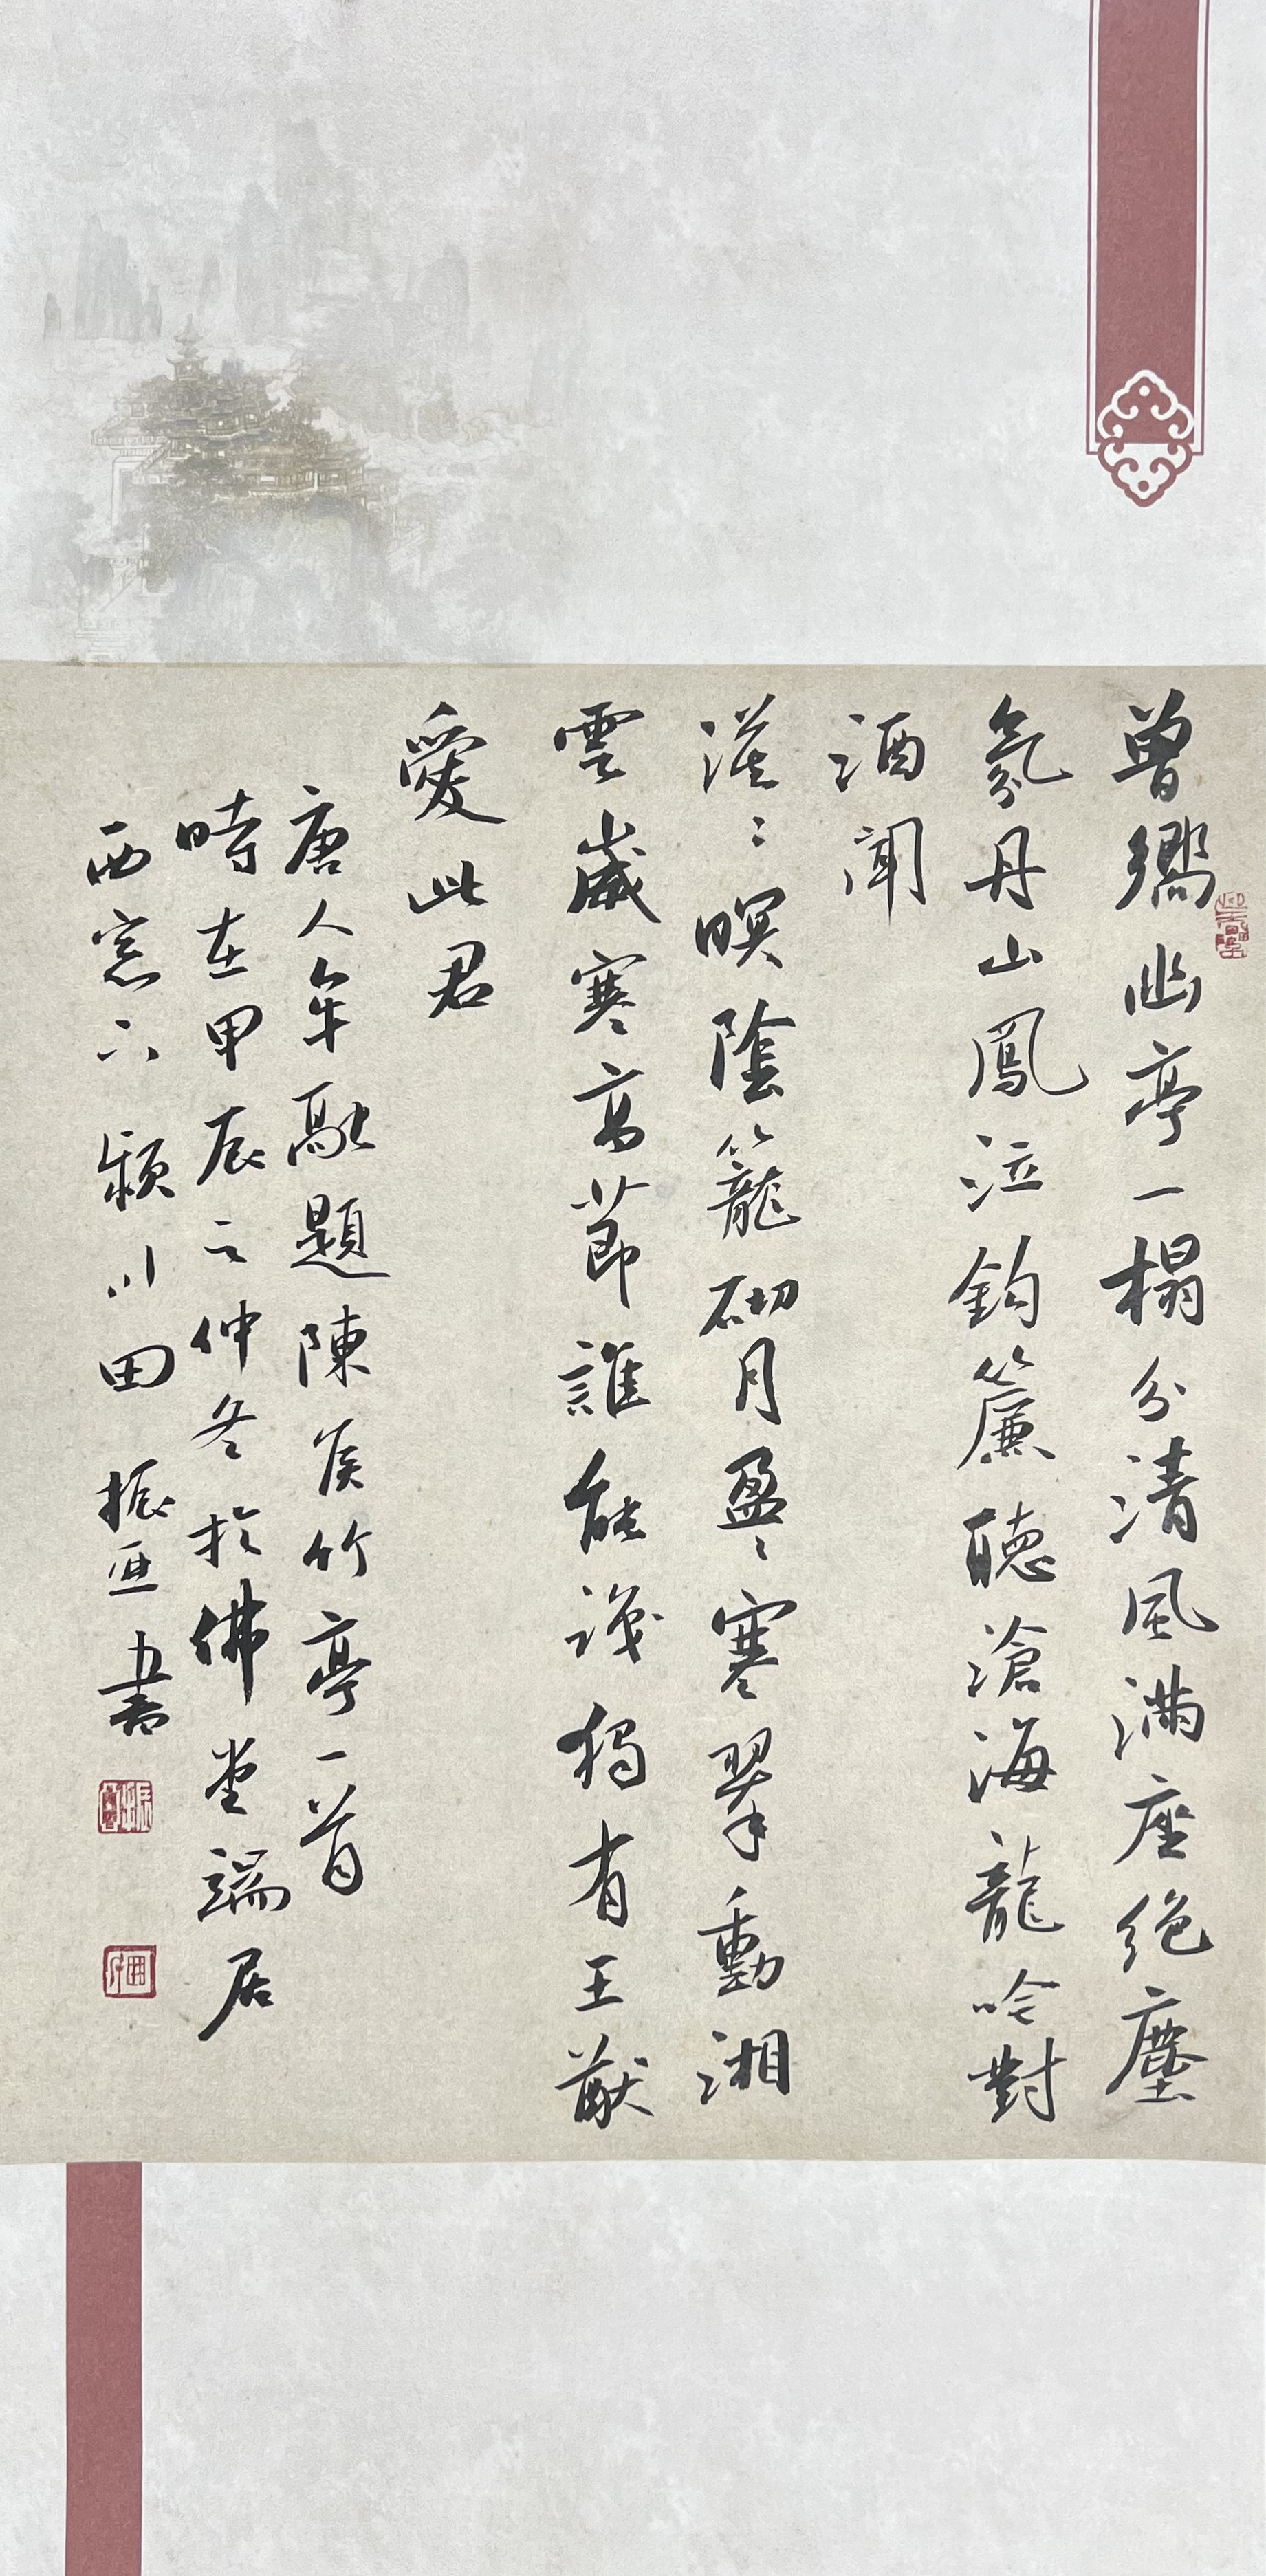 曾嚮幽亭一榻分清風滿座絕塵
氛丹山鳳泣鈎簾聽滄海龍吟對
酒聞
漠〻暝陰籠砌月盈〻寒翠動湘
雲歲寒高節誰能識獨有王猷
愛此君
唐人牟融題陳侯竹亭一首
時在甲辰之仲冬於佛堂端居
西窓下潁川田振亚書